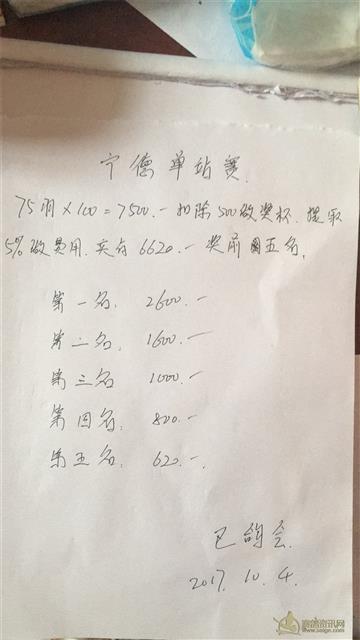 宁德单站赛.
75羽×100=7500.一 扣除500做奖杯.提取
5%做费用.共有6620.一 奖前五名.
第一名. 2600.一
第二名. 1600.一
第三名 1000.一
第四名. 800.一
第五名. 620.一.
鸽会.
2017.10.4.
赛鸽资讯网
www.saige.com